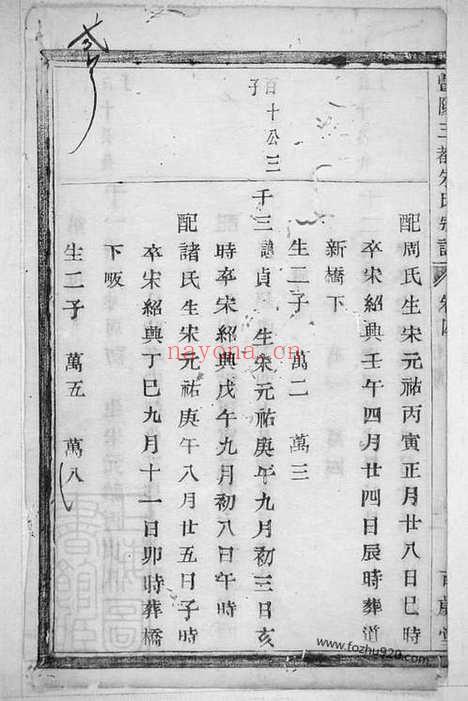 暨陽三都朱氏宗譜 卷四
配周氏生宋元祐丙寅正月廿八日巳時
卒宋紹興壬午四月廿四日辰時葬道
新橋下
生二子 萬二 萬三
百十公三子
千三 諱貞 生宋元祐庚午九月初三日亥
時卒宋紹興戊午九月初八日午時
配諸氏生宋元祐庚午八月廿五日子時
卒宋紹興丁巳九月十一日卯時葬橋
下畈
生二子 萬五 萬八
nayona.cn
www.fozhu920.com